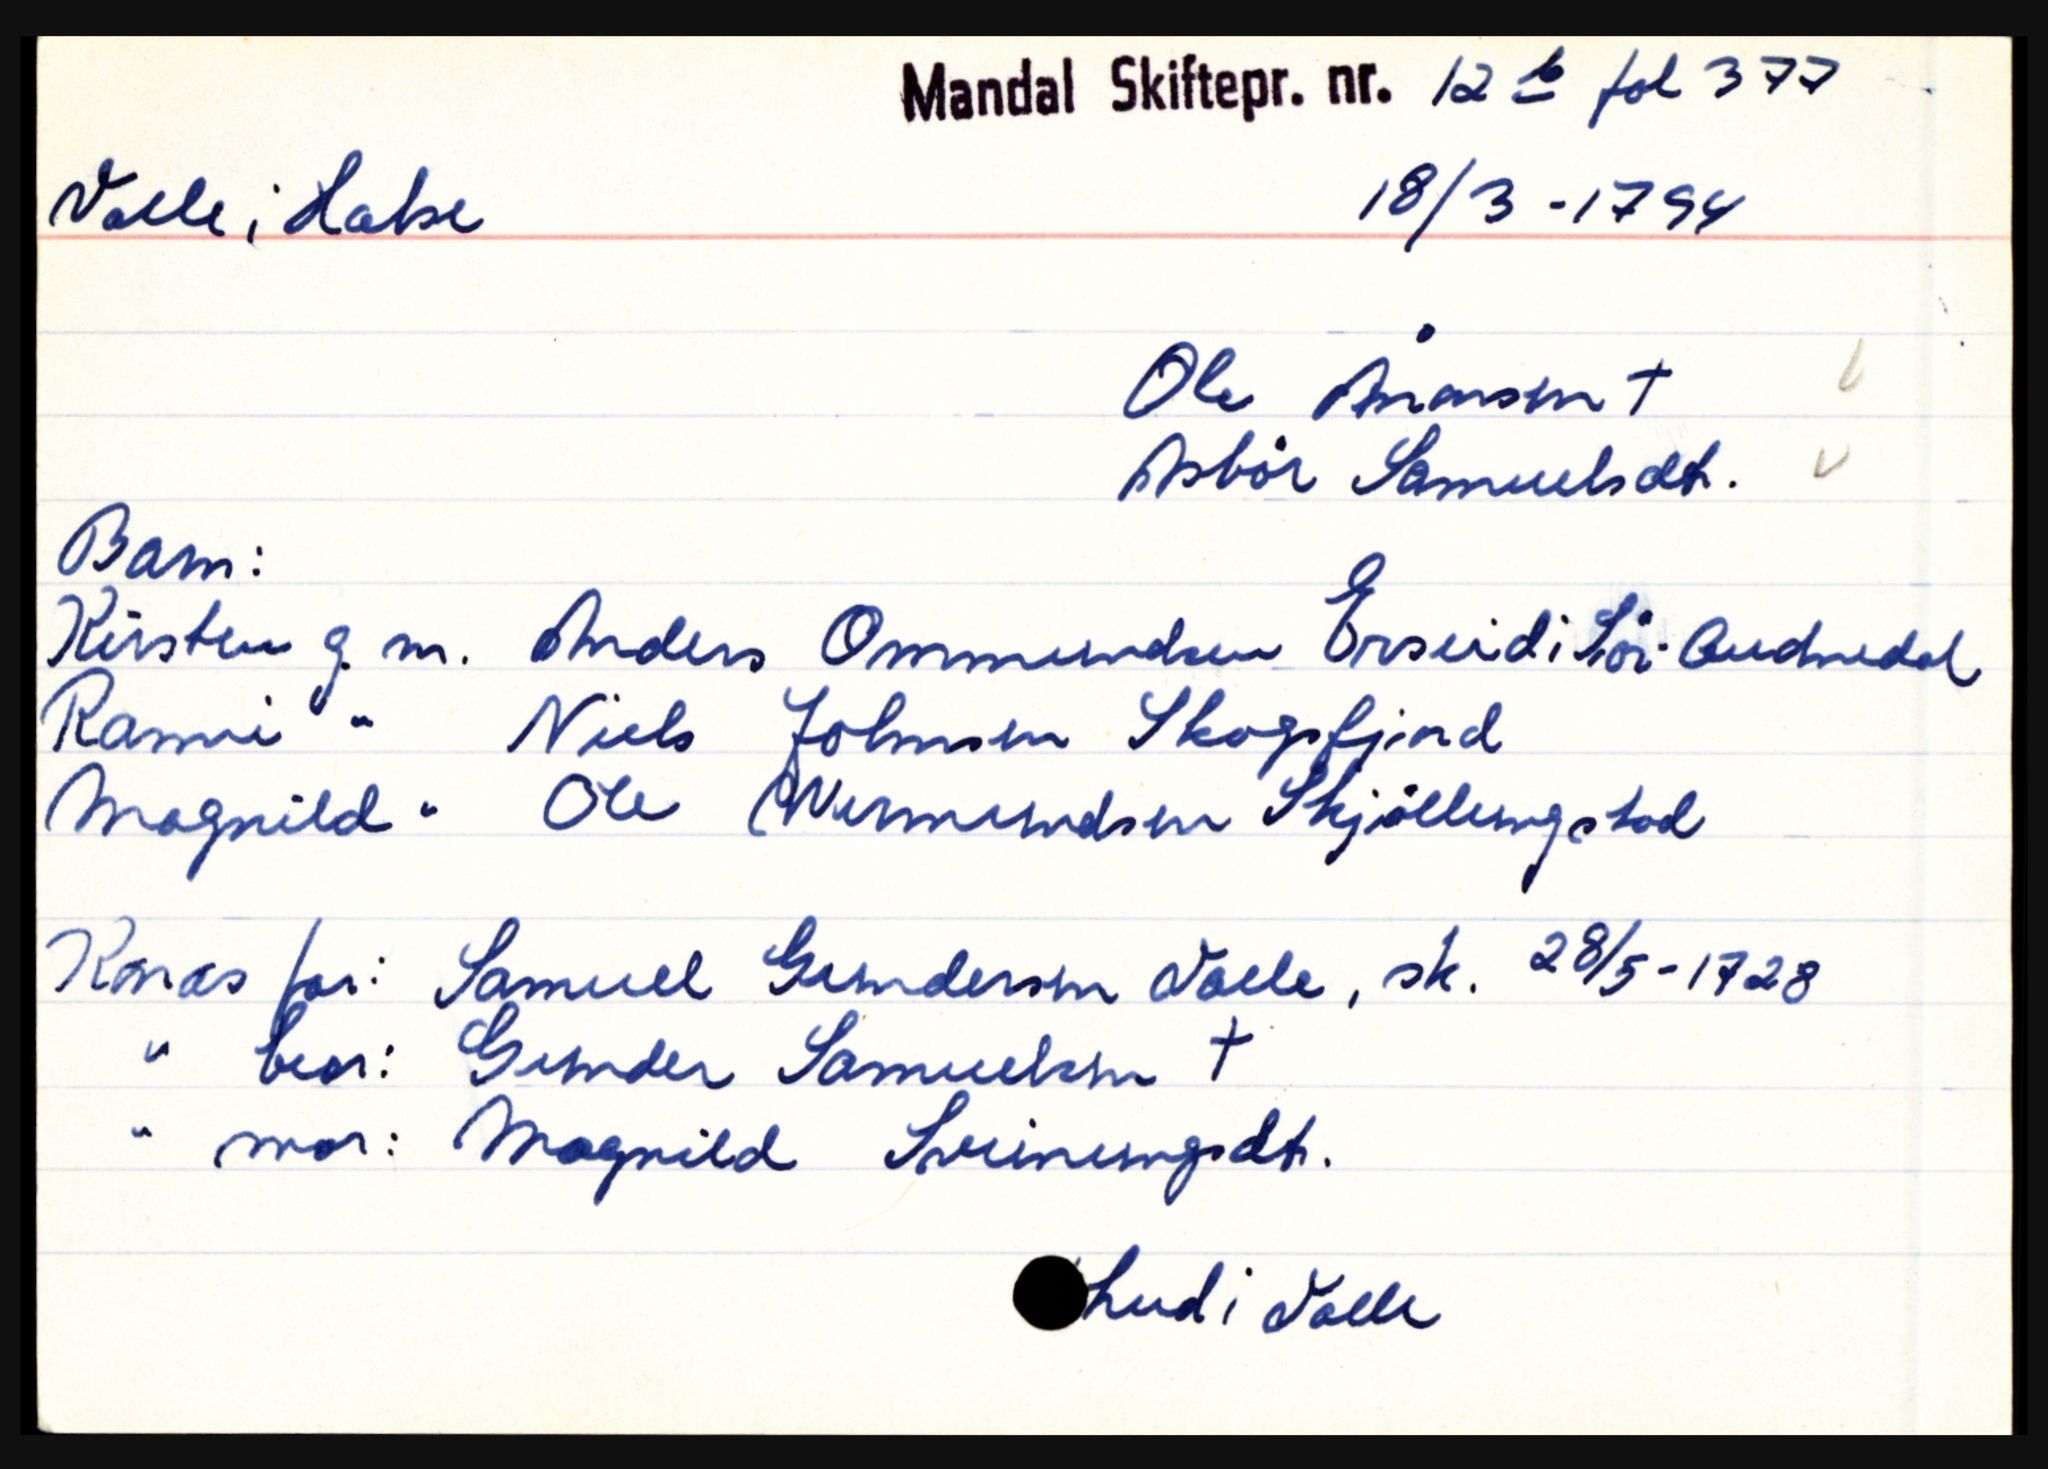 Mandal Skiftepr. nr. 12 b fol 377
Valle i Halse 18/3 - 1794
Ole Ånonsen †
Asbör Samuelsdt.
Barn:
Kirsten g. m. Anders Ommundsen Erseid i Sör-Audnedal
Ranvi " " Niels Johnsen Skogsfjord
Magnild " Ole Wermundsen Skjöllingstad
Konas far: Samuel Gundersen Valle, sk. 28/5 - 1728
" bror: Gunder Samuelsen †
" mor: Magnild Sveinungsdt.
Lud i Valle